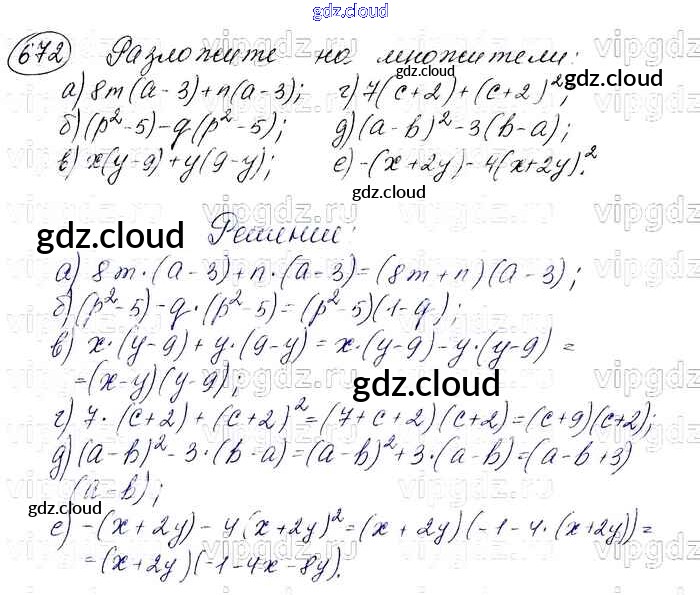 gdz.cloud
672 Разложите на множители:
а) 8m(a-3)+n(a-3); г) 7(c+2)+(c+2)²;
gdz.cloud
б) (p²-5)-q(p²-5); д) (a-b)²-3(b-a);
в) x(y-9)+y(9-y); е) -(x+2y)-4(x+2y)².
gdz.cloud
gdz.cloud
Решение:
а) 8m·(a-3)+n·(a-3)=(8m+n)(a-3);
б) (p²-5)-q·(p²-5)=(p²-5)(1-q);
в) x·(y-9)+y·(9-y)=x·(y-9)-y·(y-9)=
=(x-y)(y-9);
gdz.cloud
г) 7·(c+2)+(c+2)²=(7+c+2)(c+2)=(c+9)(c+2);
д) (a-b)²-3·(b-a)=(a-b)²+3·(a-b)=(a-b+3)
(a-b);
gdz.cloud
gdz.cloud
е) -(x+2y)-4(x+2y)²=(x+2y)(-1-4·(x+2y))=
=(x+2y)(-1-4x-8y).
vipgdz.ru